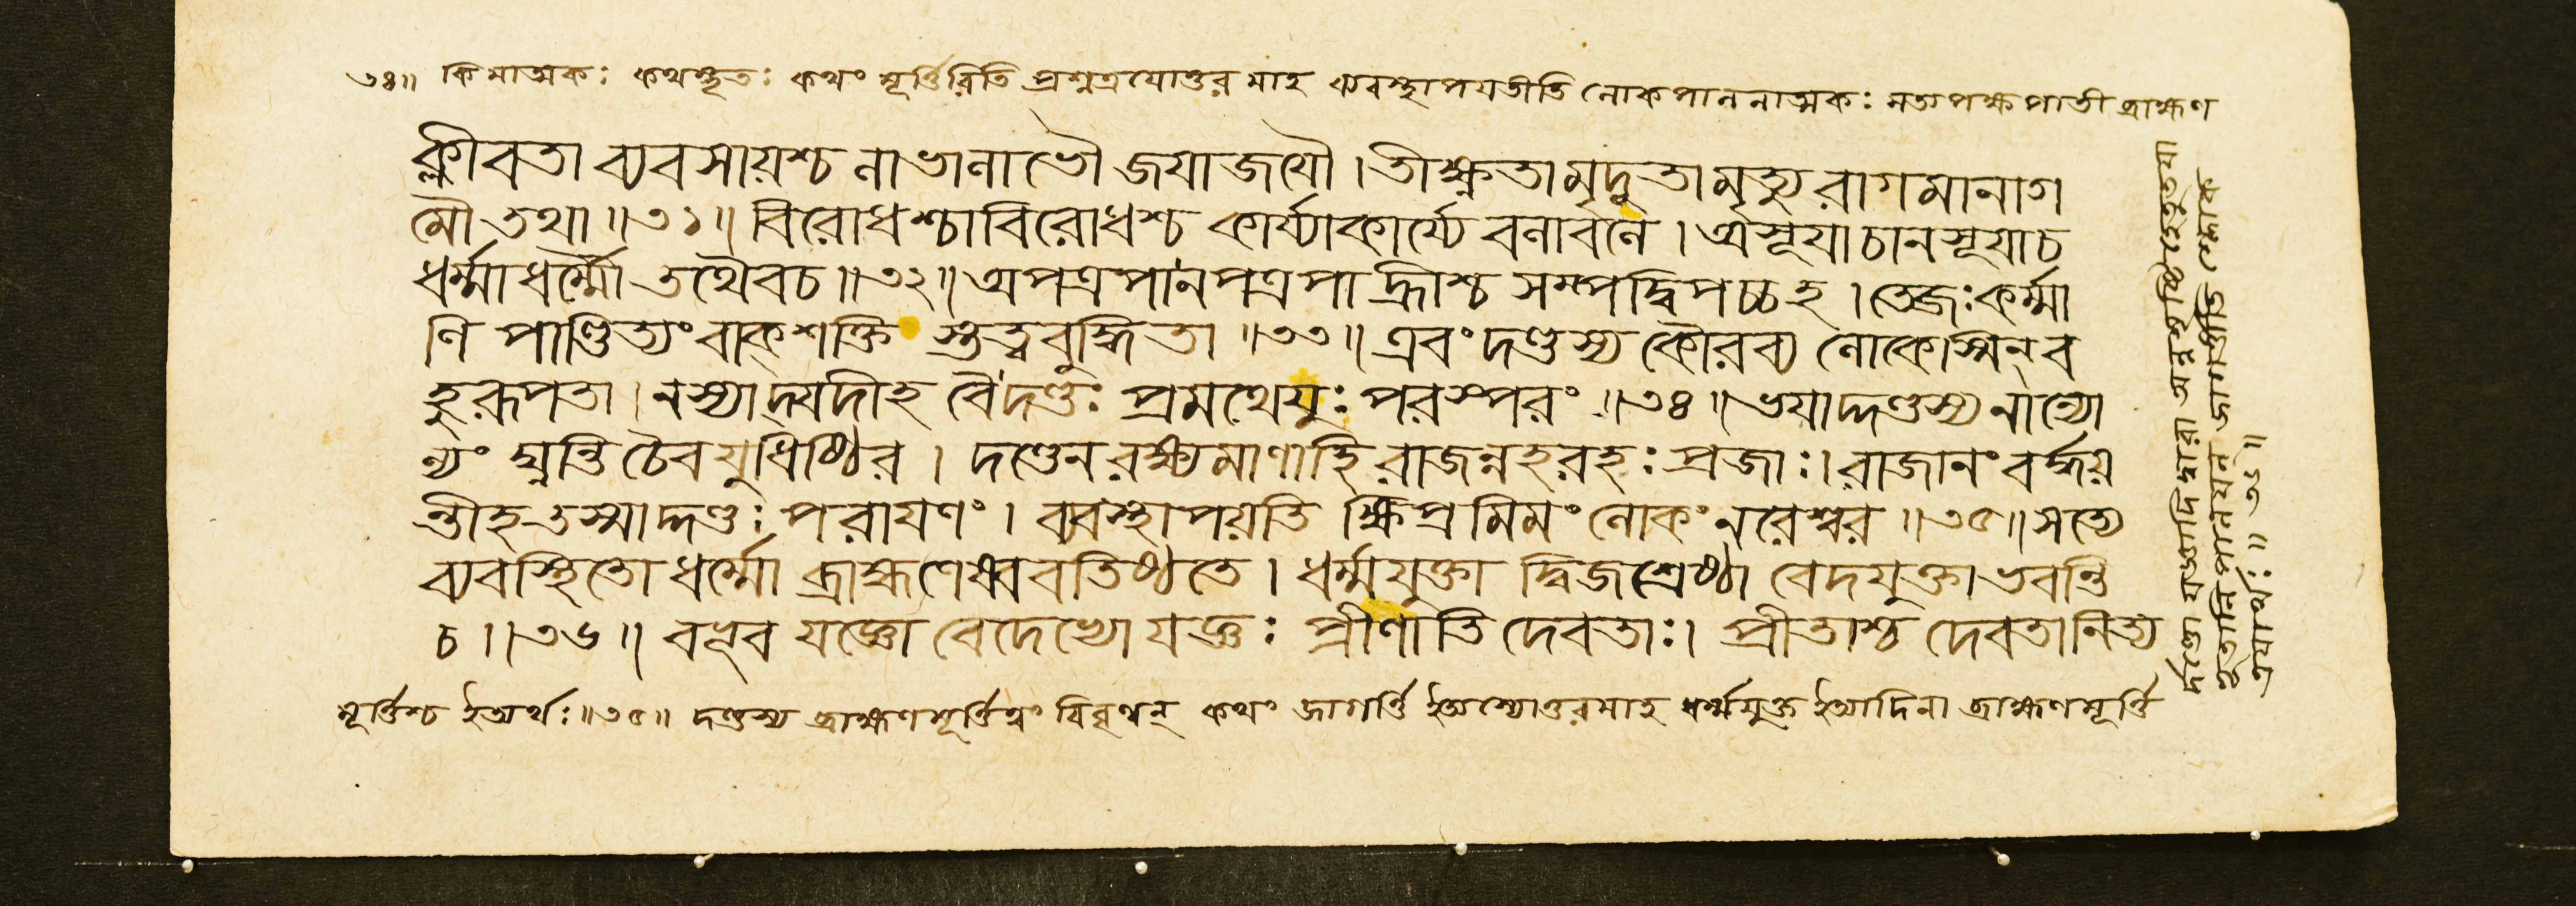 ৩৪॥ কিমাত্মকঃ কথম্ভূতঃ কথং মূর্ত্তিরিতি প্রশ্নত্রযোত্তরমাহ ব্যবস্থাপযতীতি লোকপালনাত্মকঃ সত্যপক্ষপাতী ব্রাহ্মণ
ক্লীবতা ব্যবসায়শ্চ লাভালাভৌ জযাজযৌ। তীক্ষ্ণতামৃদুতামৃত্যুরাগমানাগ
মৌ তথা॥৩১॥ বিরোধশ্চাবিরোধশ্চ কার্য্যাকার্য্যে বলাবলে। অসূযাচানসূযাচ
ধর্ম্মাধর্ম্মৌ তথৈবচ॥৩২॥ অপত্রপানপত্রপা হ্রীশ্চ সম্পদ্বিপচ্চহ। তেজঃকর্ম্মা
ণি পাণ্ডিত্যং বাক্শক্তি স্তত্ত্ববুদ্ধিতা॥৩৩॥ এবং দণ্ডস্য কৌরব্য লোকেস্মিন্ ব
হুরূপতা। নস্যাদ্যদীহ বৈদণ্ডঃ প্রমথেযুঃ পরস্পরং॥৩৪॥ ভযাদ্দণ্ডস্য নান্যো
ন্যং ঘ্নন্তি চৈব যুধিষ্ঠির। দণ্ডেন রক্ষ্যমাণাহি রাজন্নহরহঃ প্রজাঃ। রাজানং বর্দ্ধয়
ন্তীহ তস্মাদ্দণ্ডঃ পরাযণং। ব্যবস্থাপয়তি ক্ষিপ্রমিমং লোকং নরেশ্বর॥৩৫॥ সত্যে
ব্যবস্থিতো ধর্ম্মো ব্রাহ্মণেষ্ববতিষ্ঠতে। ধর্ম্মযুক্তা দ্বিজশ্রেষ্ঠা বেদযুক্তা ভবন্তি
চ॥৩৬॥ বভূব যজ্ঞো বেদেভ্যো যজ্ঞঃ প্রীণাতি দেবতাঃ। প্রীতাশ্চ দেবতানিত্য
মূর্ত্তিশ্চ ইত্যর্থঃ॥৩৫॥ দণ্ডস্য ব্রাহ্মণমূর্ত্তিত্বং বিবৃণ্বন্ কথং জাগর্ত্তি ইত্যস্যোত্তরমাহ ধর্ম্মযুক্ত ইত্যাদিনা ব্রাহ্মণমূর্ত্তি
র্দণ্ডো যজ্ঞাদিদ্বারা অন্নবৃষ্টিহেতুতযা
ভূতানি পালযন্ জাগর্ত্তীতি শ্লোক
ত্রযার্থঃ॥ ৩৬॥